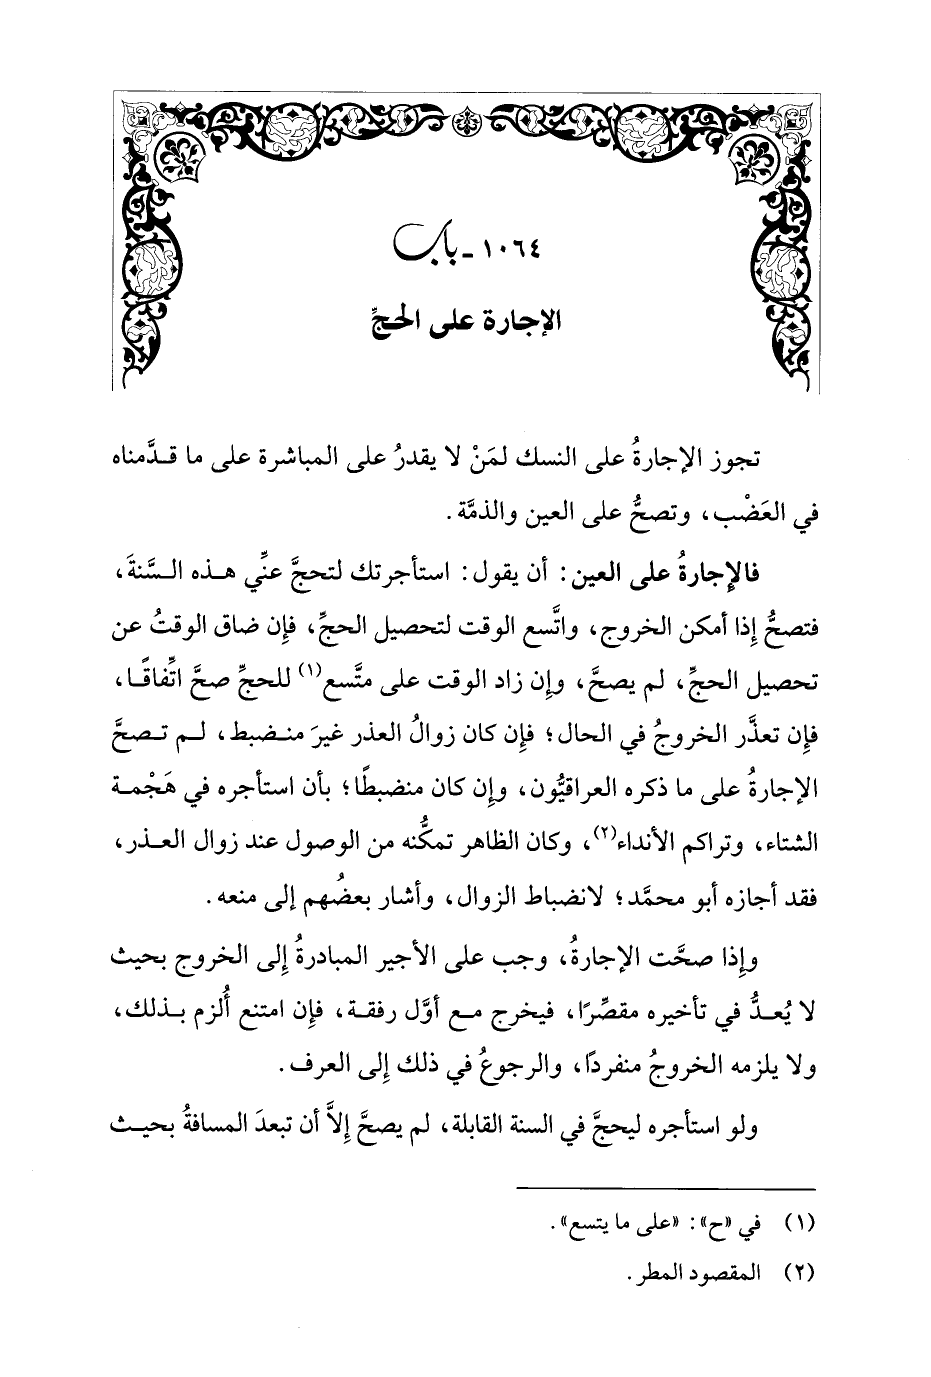 ١٠٦٤ - باب
الإجارة على الحجِّ
تجوز الإجارةُ على النسك لمَنْ لا يقدرُ على المباشرة على ما قدَّمناه
في العَضْب، وتصحُّ على العين والذمَّة.
فالإجارةُ على العين: أن يقول: استأجرتك لتحجَّ عنِّي هذه السَّنةَ،
فتصحُّ إذا أمكن الخروج، واتَّسع الوقت لتحصيل الحجِّ، فإن ضاق الوقتُ عن
تحصيل الحجِّ، لم يصحَّ، وإن زاد الوقت على متَّسع(١) للحجِّ صحَّ اتِّفاقًا،
فإن تعذَّر الخروجُ في الحال؛ فإن كان زوالُ العذر غيرَ منضبط، لم تصحَّ
الإجارةُ على ما ذكره العراقيُّون، وإن كان منضبطًا؛ بأن استأجره في هَجْمة
الشتاء، وتراكم الأنداء(٢)، وكان الظاهر تمكُّنه من الوصول عند زوال العذر،
فقد أجازه أبو محمَّد؛ لانضباط الزوال، وأشار بعضُهم إلى منعه.
وإذا صحَّت الإجارةُ، وجب على الأجير المبادرةُ إلى الخروج بحيث
لا يُعدُّ في تأخيره مقصِّرًا، فيخرج مع أوَّل رفقة، فإن امتنع أُلزم بذلك،
ولا يلزمه الخروجُ منفردًا، والرجوعُ في ذلك إلى العرف.
ولو استأجره ليحجَّ في السنة القابلة، لم يصحَّ إلاَّ أن تبعدَ المسافةُ بحيث
(١) في «ح»: «على ما يتسع».
(٢) المقصود المطر.